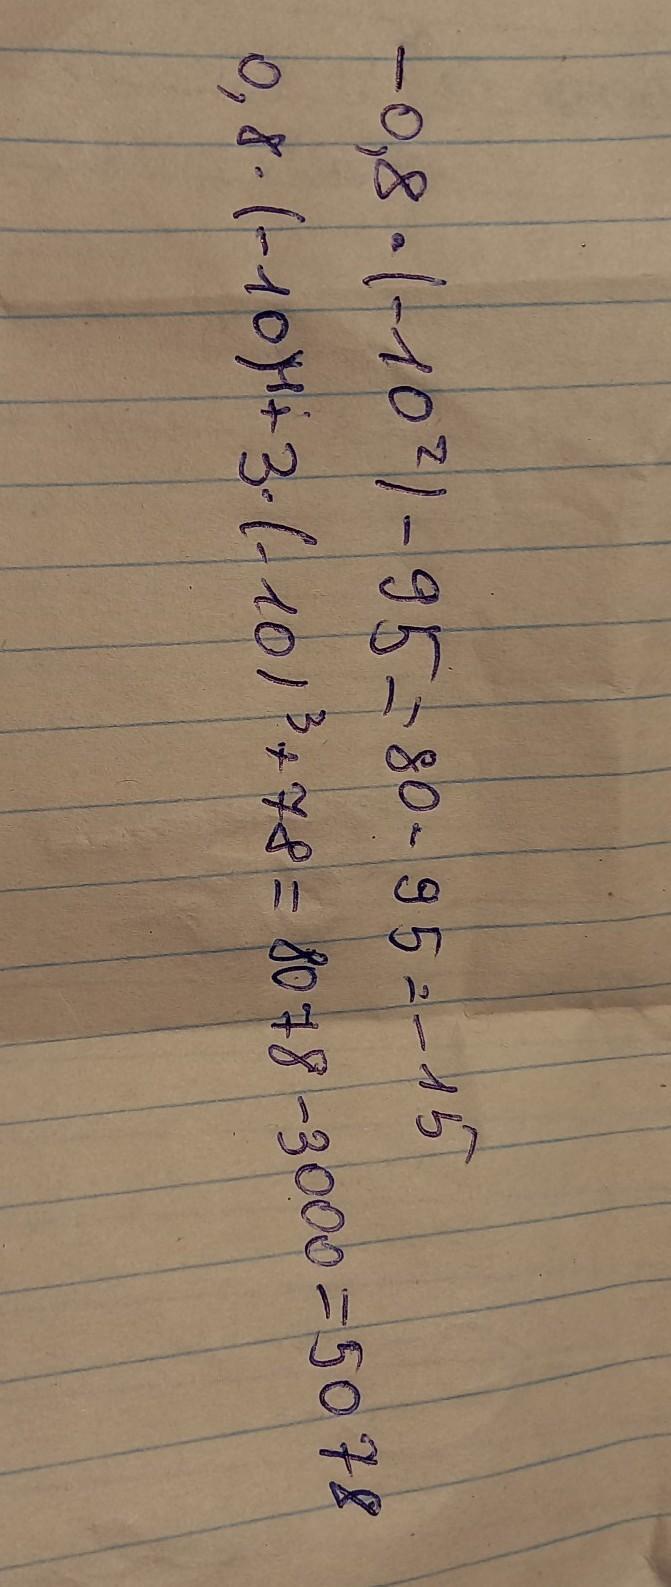 -0,8·(-10²)-95=80-95=-15
0,8·(-10)⁴+3·(-10)³+78=8078-3000=5078